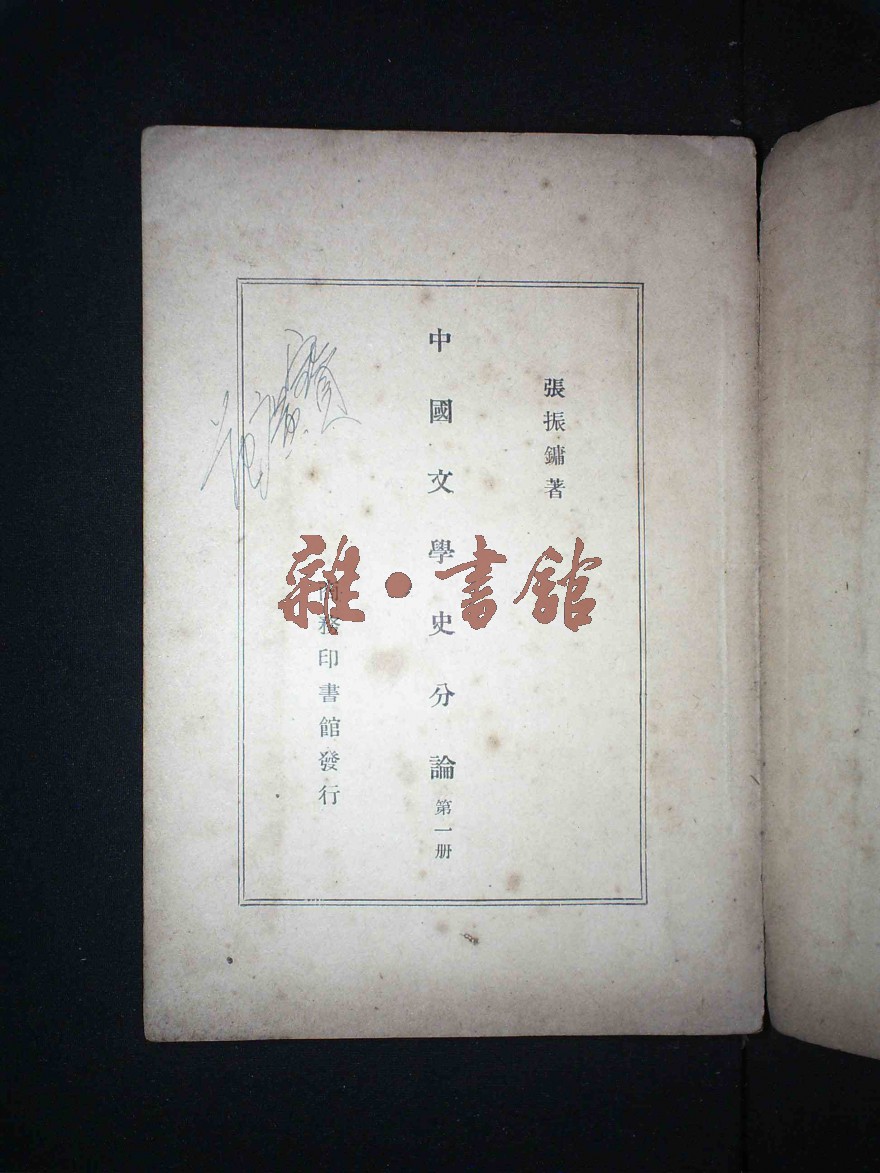 張振鏞著
中國文學史分論 第一册
商務印書館發行
雜·書館